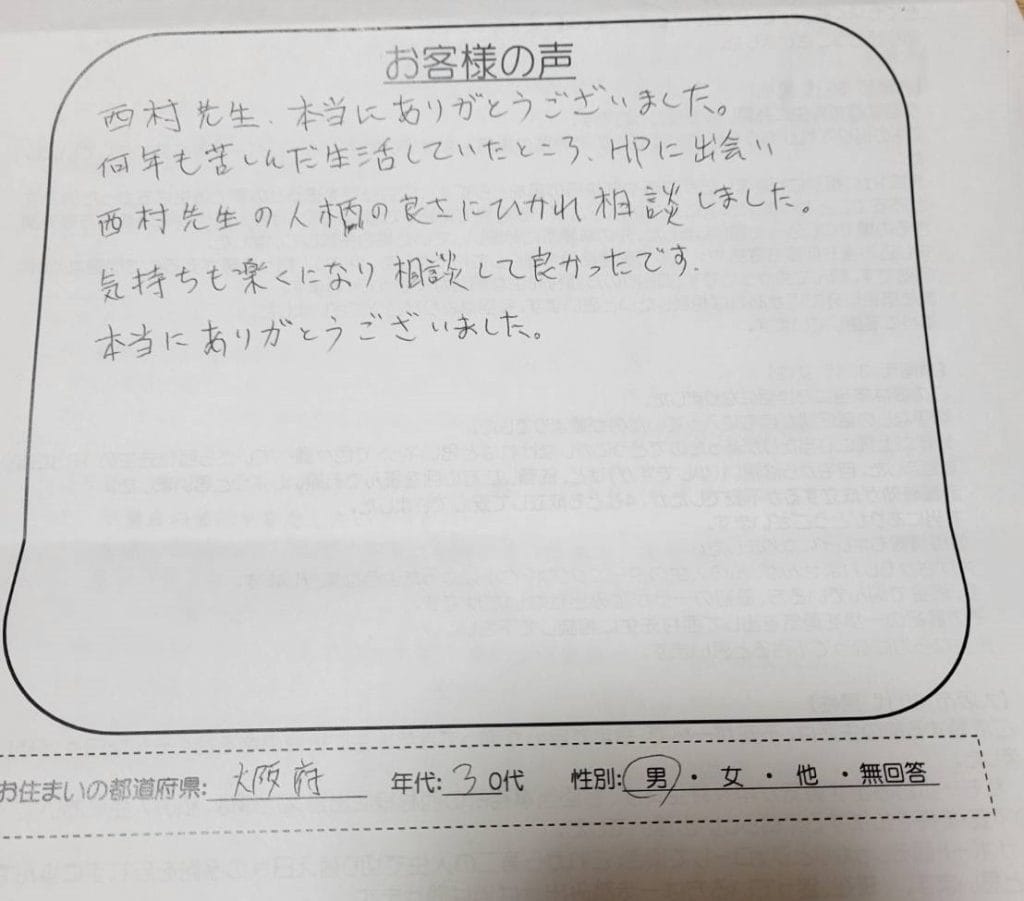 お客様の声
西村先生、本当にありがとうございました。
何年も苦しんだ生活していたところ、HPに出会い
西村先生の人柄の良さにひかれ相談しました。
気持ちも楽くになり相談して良かったです.
本当にありがとうございました。
お住まいの都道府県: 大阪府 年代: 30代 性別: 男・女・他・無回答